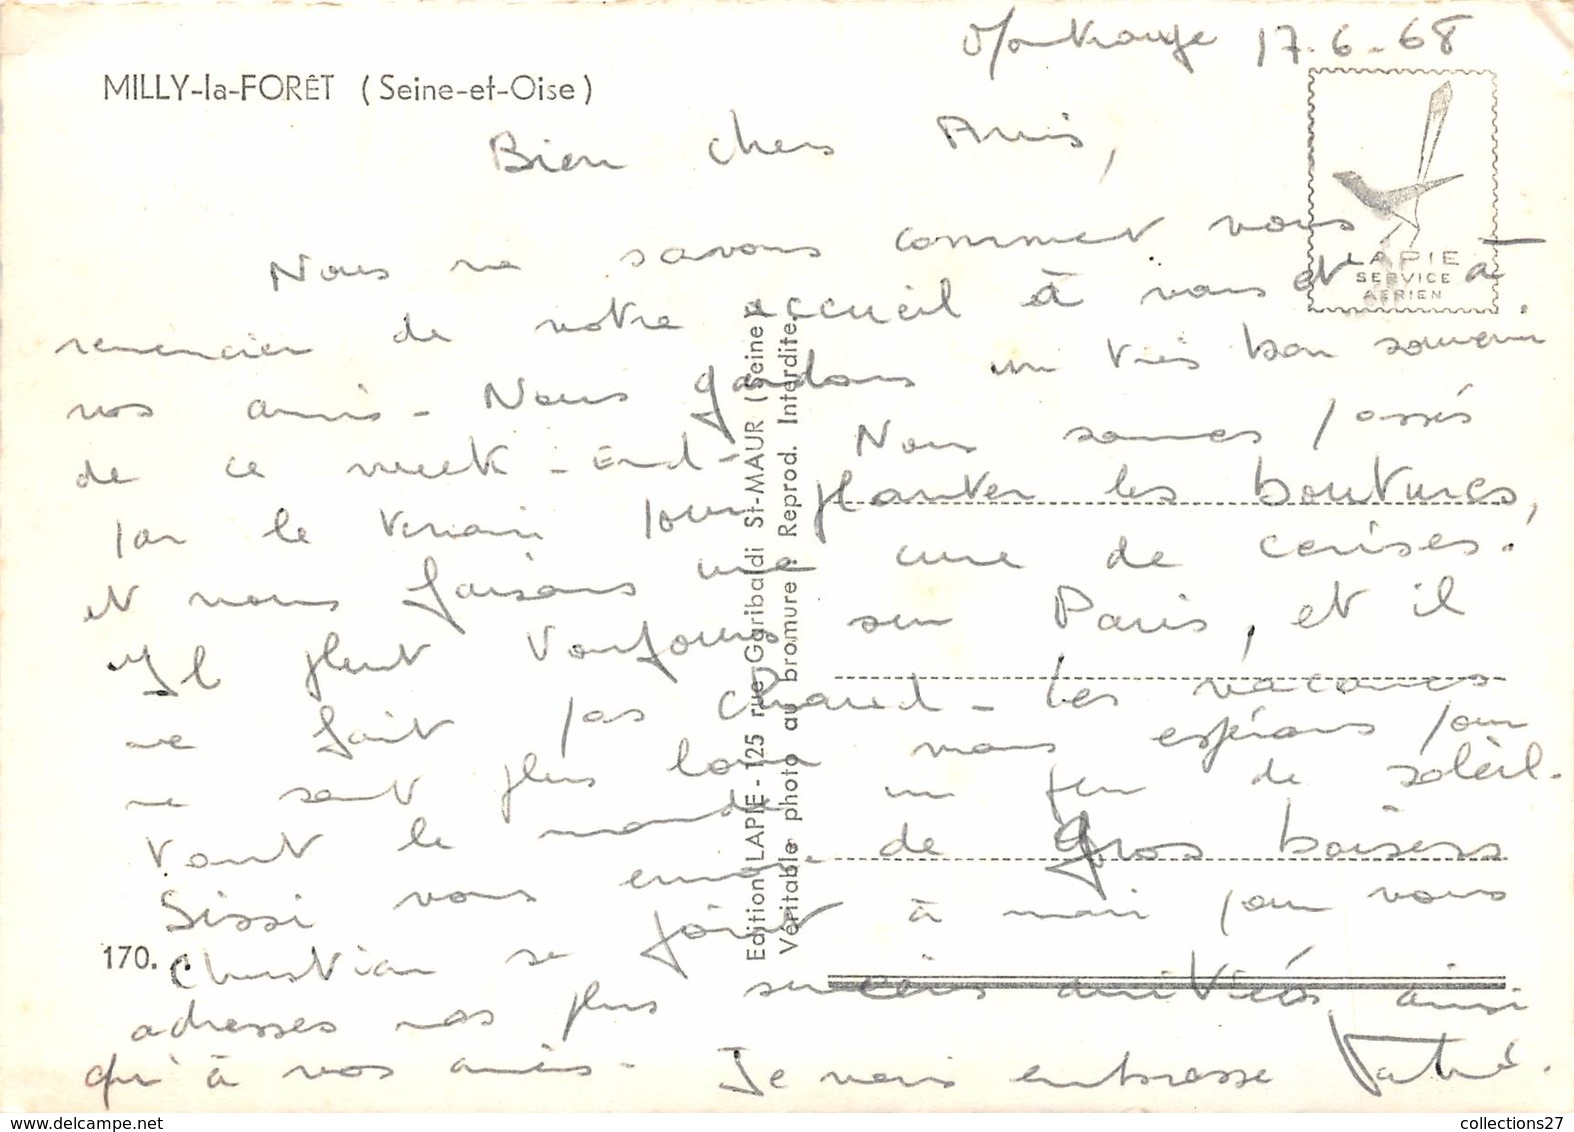 Montrouge 17-6-68
MILLY-la-FORÊT (Seine-et-Oise)
Bien chers Amis,
Nous ne savons comment vous
remercier de votre accueil à vous et à
vos amis - Nous gardons un très bon souvenir
de ce week-end - Nous sommes passés
par le terrain pour planter les boutures,
et nous faisons une cure de cerises.
Il pleut toujours sur Paris, et il
ne fait pas chaud - Les vacances
ne sont plus loin nous espérons pour
tout le monde un peu de soleil.
Sissi vous envoie de gros baisers
Christian se joint à moi pour vous
adresses nos plus sincères amitiés ainsi
qu'à vos amis - Je vous embrasse
LAPIE
SERVICE
AERIEN
Edition LAPIE - 125 rue Garibaldi St-MAUR (Seine)
Véritable photo au bromure. Reprod. Interdite.
170.
collections27